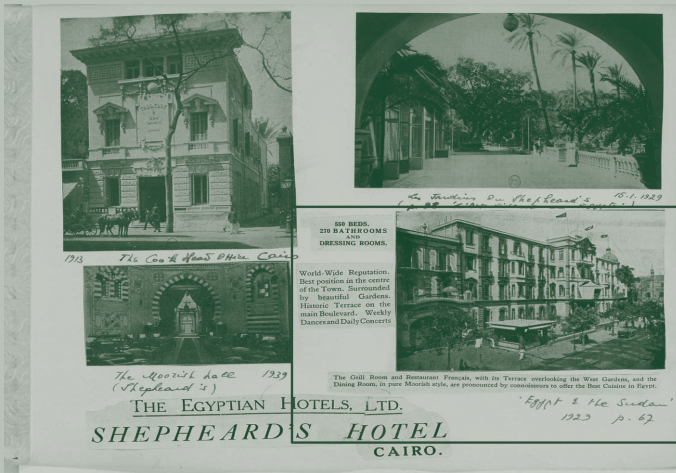 Les Jardins Du Shepheard's 15-1-1929
1913 The Cook Head Office Cairo
550 BEDS.
270 BATHROOMS
AND
DRESSING ROOMS.
World-Wide Reputation.
Best position in the centre
of the Town. Surrounded
by beautiful Gardens.
Historic Terrace on the
main Boulevard. Weekly
Dances and Daily Concerts
The Moorish hall 1939
(Shepheard's)
The Grill Room and Restaurant Français, with its Terrace overlooking the West Gardens, and the
Dining Room, in pure Moorish style, are pronounced by connoisseurs to offer the Best Cuisine in Egypt.
'Egypt & the Sudan'
1929 p. 67
THE EGYPTIAN HOTELS, LTD.
SHEPHEARD'S HOTEL
CAIRO.